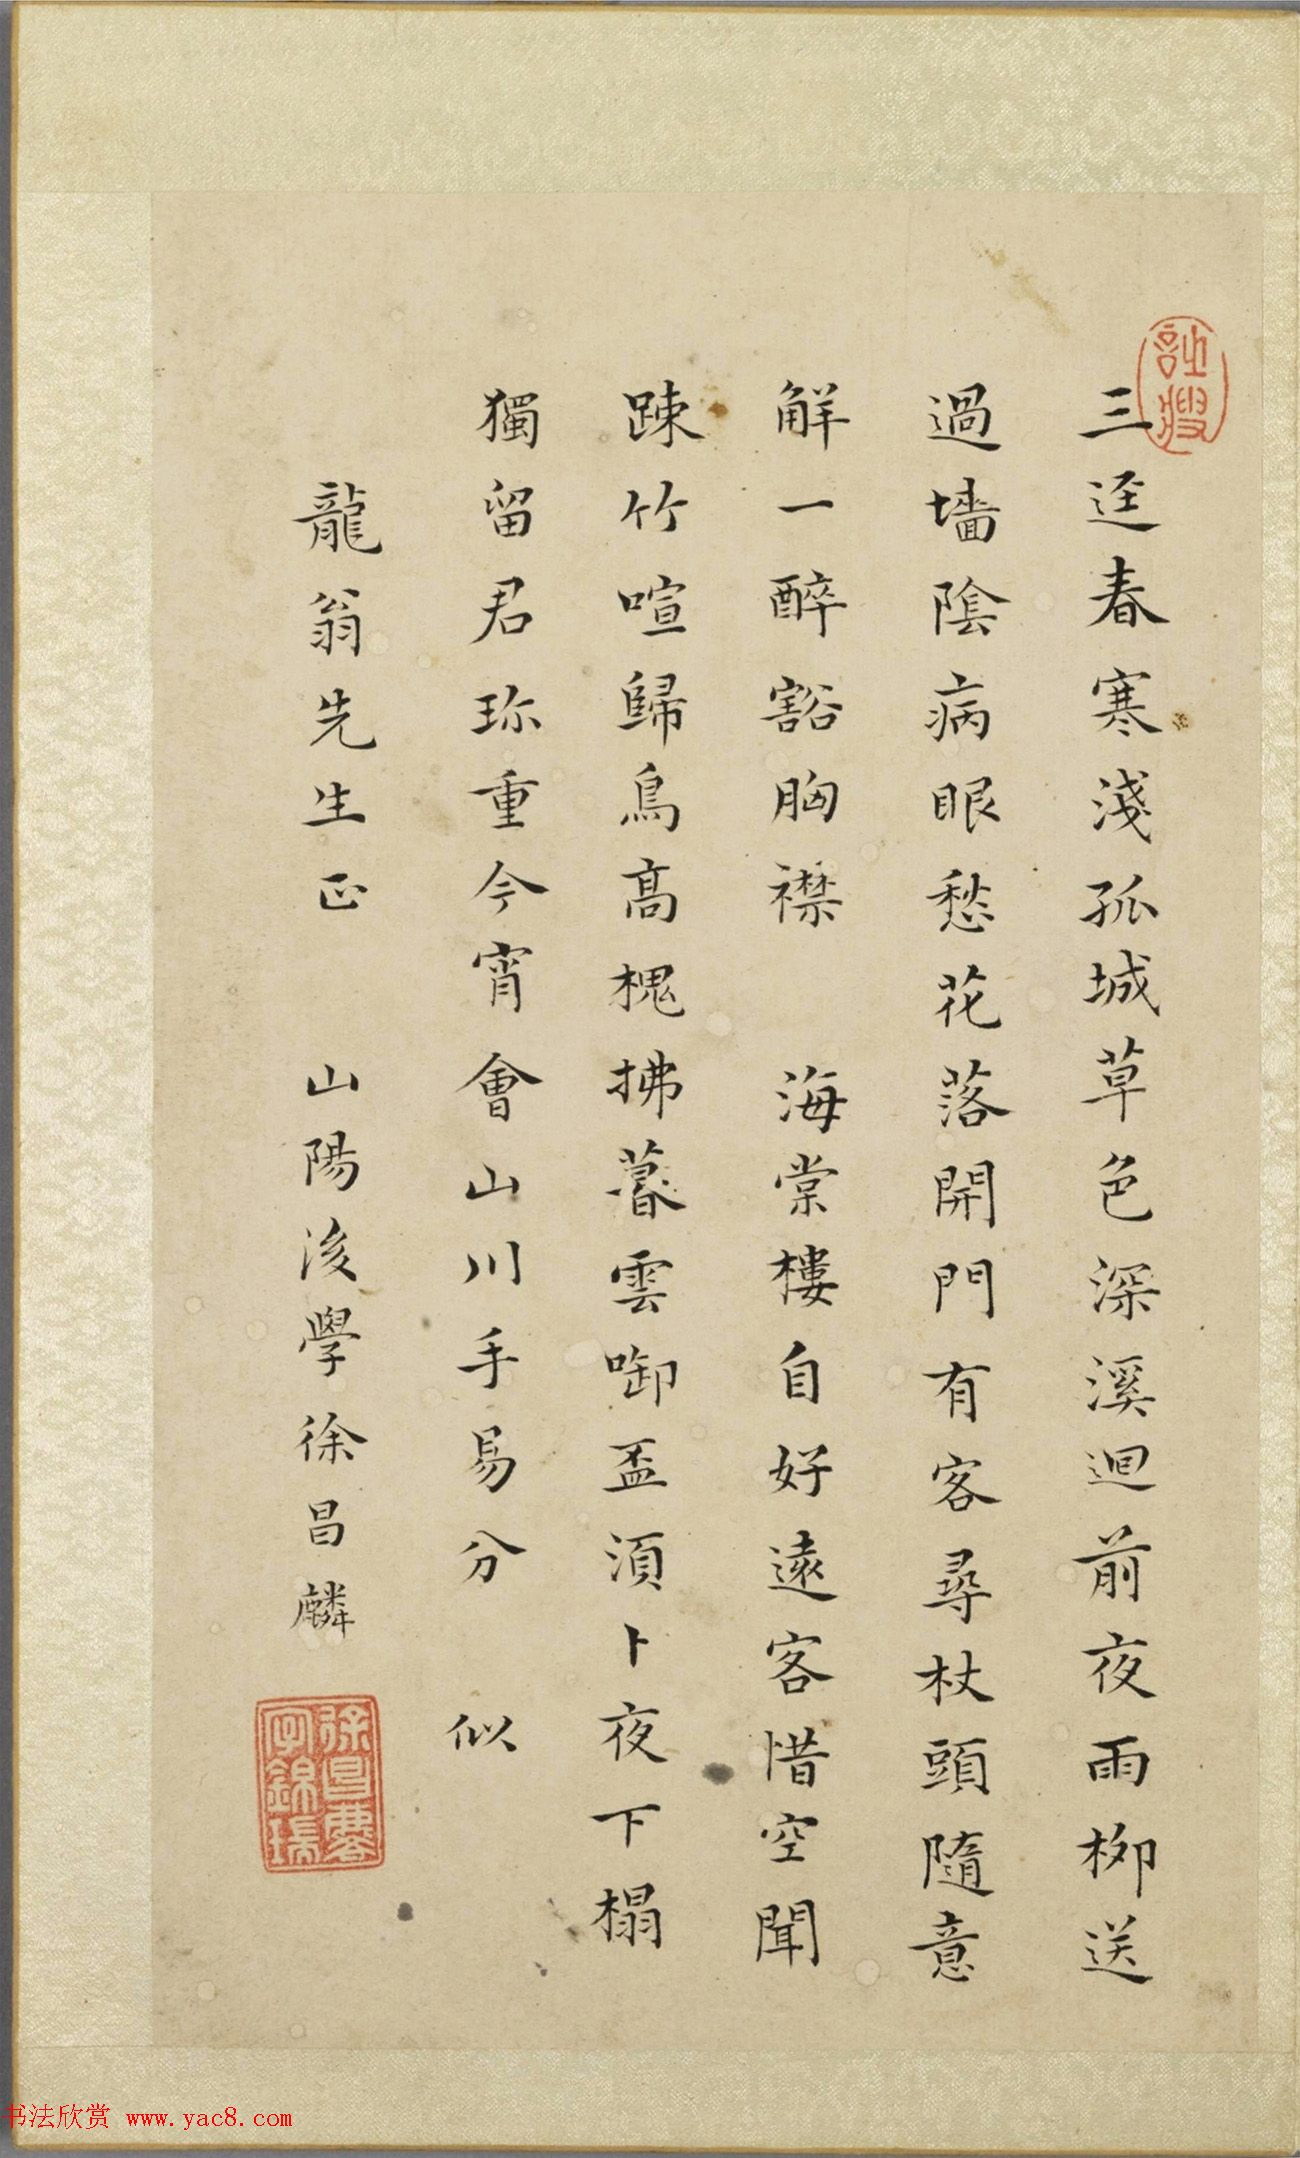 三迳春寒淺孤城草色深溪迴前夜雨柳送
過墻陰病眼愁花落開門有客尋杖頭隨意
解一醉豁胸襟　海棠樓自好遠客惜空聞
踈竹喧歸鳥高槐拂暮雲啣盃須卜夜下榻
獨留君珎重今宵會山川手易分　似
龍翁先生正　山陽後學徐昌麟
书法欣赏 www.yac8.com